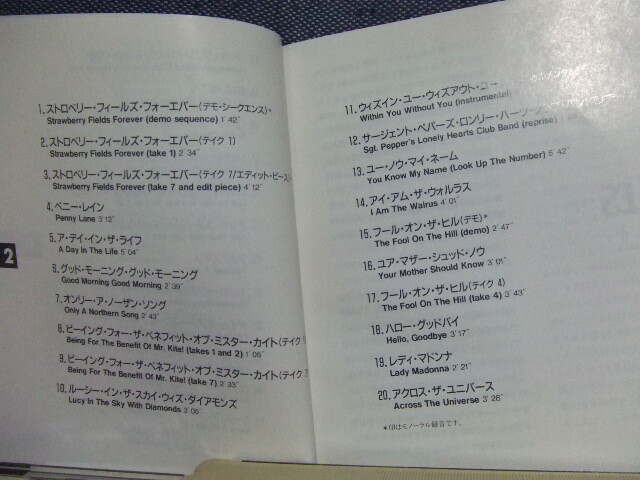 1.ストロベリー・フィールズ・フォーエバー(デモ・シークエンス)*
Strawberry Fields Forever (demo sequence) 1'42"
2.ストロベリー・フィールズ・フォーエバー(テイク 1)
Strawberry Fields Forever (take 1) 2'34"
3.ストロベリー・フィールズ・フォーエバー(テイク 7/エディット・ピース)
Strawberry Fields Forever (take 7 and edit piece) 4'12"
4.ペニー・レイン
Penny Lane 3'12"
5.ア・デイ・イン・ザ・ライフ
A Day In The Life 5'04"
6.グッド・モーニング・グッド・モーニング
Good Morning Good Morning 2'39"
7.オンリー・ア・ノーザン・ソング
Only A Northern Song 2'43"
8.ビーイング・フォー・ザ・ベネフィット・オブ・ミスター・カイト(テイク
Being For The Benefit Of Mr. Kite! (takes 1 and 2) 1'05"
9.ビーイング・フォー・ザ・ベネフィット・オブ・ミスター・カイト(テイク
Being For The Benefit Of Mr. Kite! (take 7) 2'33"
10.ルーシー・イン・ザ・スカイ・ウィズ・ダイアモンズ
Lucy In The Sky With Diamonds 3'05"
2
11.ウィズイン・ユー・ウィズアウト・ユー
Within You Without You (instrumental)
12.サージェント・ペパーズ・ロンリー・ハーツ・
Sgt. Pepper's Lonely Hearts Club Band (reprise)
13.ユー・ノウ・マイ・ネーム
You Know My Name (Look Up The Number) 5'42"
14.アイ・アム・ザ・ウォルラス
I Am The Walrus 4'01"
15.フール・オン・ザ・ヒル(デモ)*
The Fool On The Hill (demo) 2'47"
16.ユア・マザー・シュッド・ノウ
Your Mother Should Know 3'01"
17.フール・オン・ザ・ヒル(テイク 4)
The Fool On The Hill (take 4) 3'43"
18.ハロー・グッドバイ
Hello, Goodbye 3'17"
19.レディ・マドンナ
Lady Madonna 2'21"
20.アクロス・ザ・ユニバース
Across The Universe 3'28"
*印はモノーラル録音です。
ES